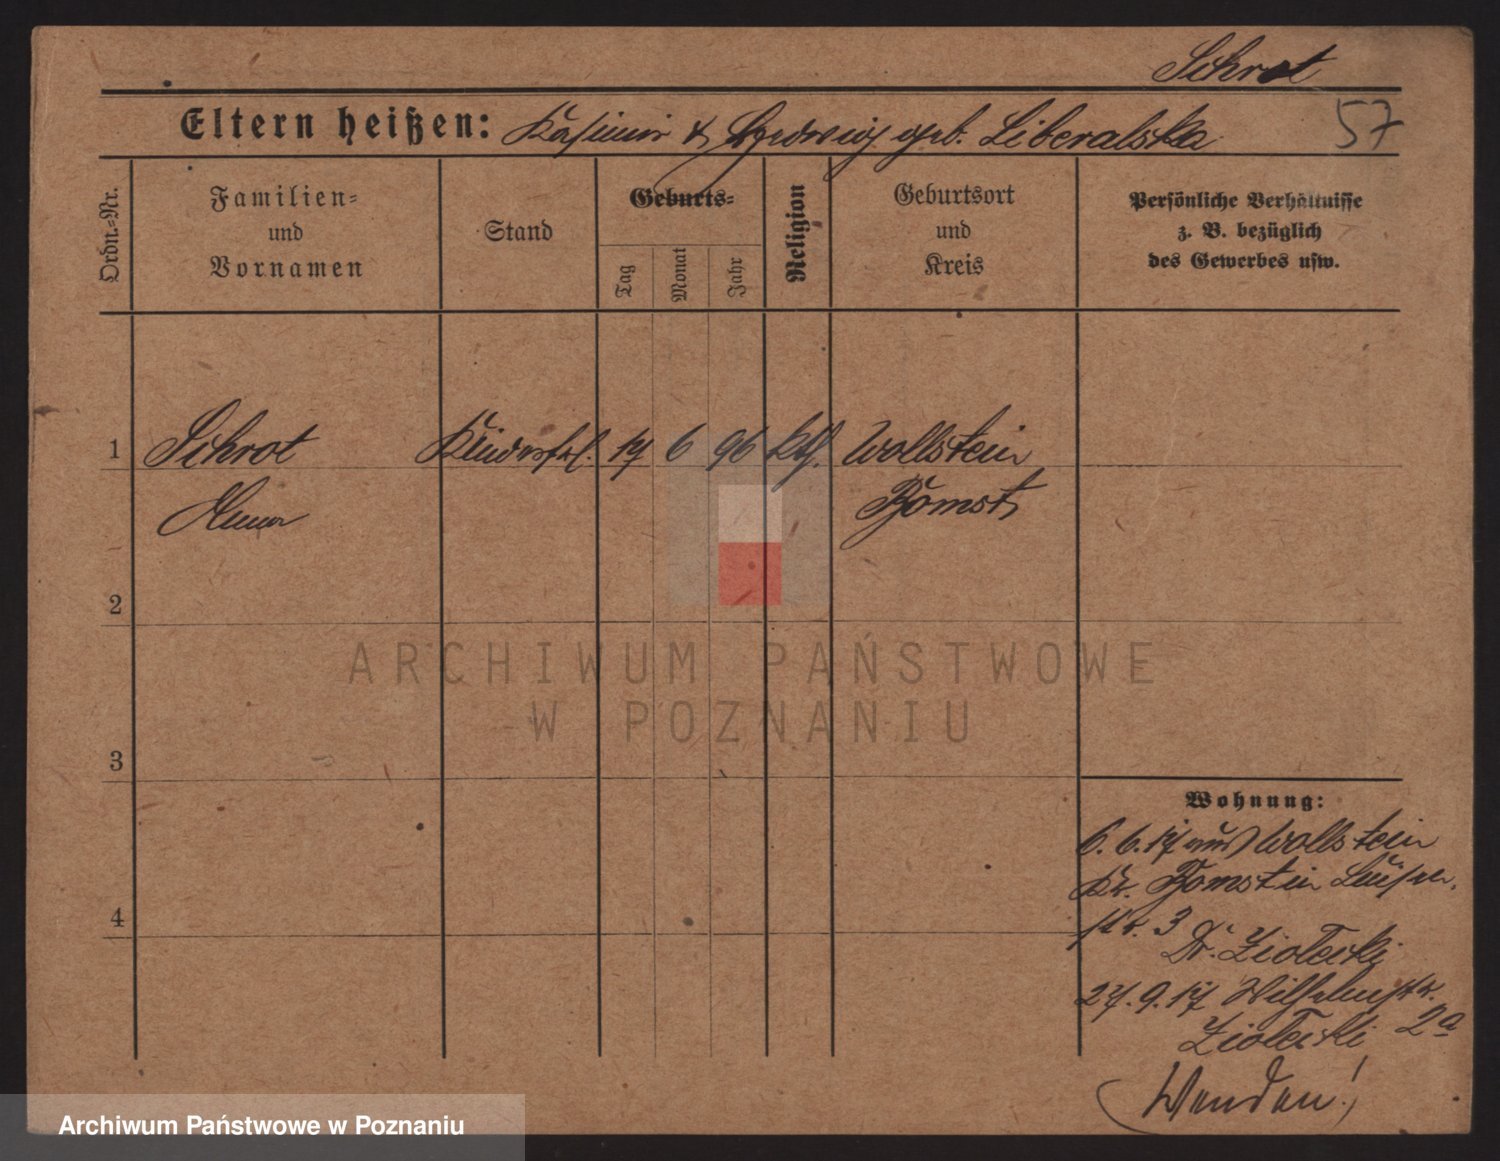 Schrot
Eltern heißen: Kasimir & Hedwig geb. Liberalska
57
Ordn.-Nr.
Familien-
und
Vornamen
Stand
Geburts-
Tag
Monat
Jahr
Religion
Geburtsort
und
Kreis
Persönliche Verhältnisse
z. B. bezüglich
des Gewerbes usw.
1 Schrot Kinderfrl. 19 6 96 kth. Wollstein
Bomst
2
ARCHIWUM PAŃSTWOWE
W POZNANIU
3
Wohnung:
6.6.17 aus Wollstein
Kr. Bomst in Luisen
str. 3
Dr. Ziolecki
27.9.17 Wilhelmstr.
2a
Ziolecki
4
Wenden!
Archiwum Państwowe w Poznaniu